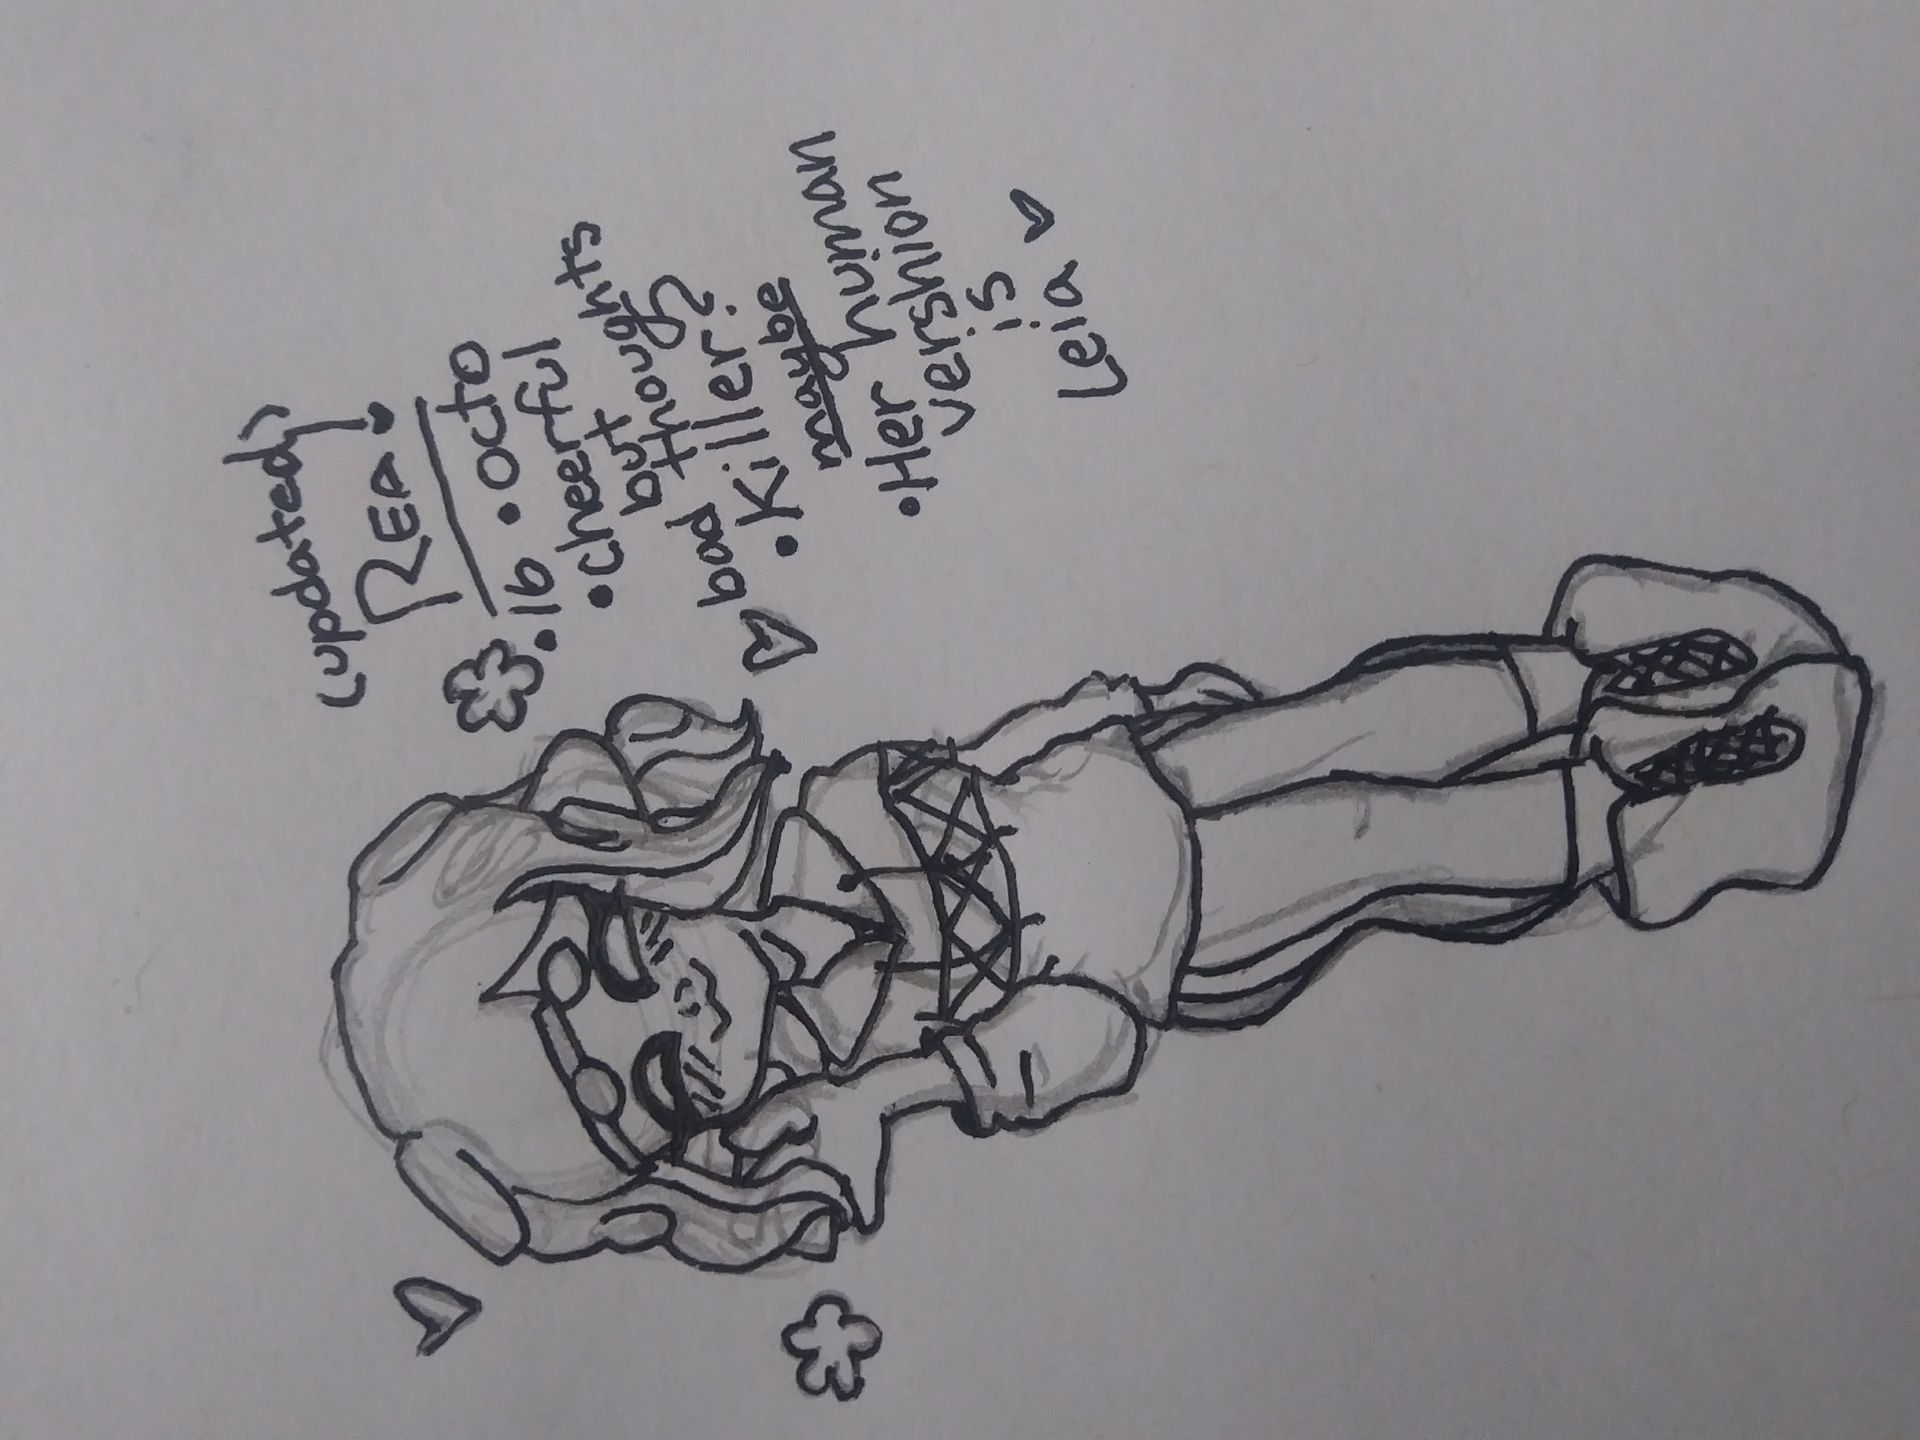 (updated)
REA
•16 •octo
•cheerful
but
bad thoughts
•Killer?
maybe
•Her human
vershion
is
Leia